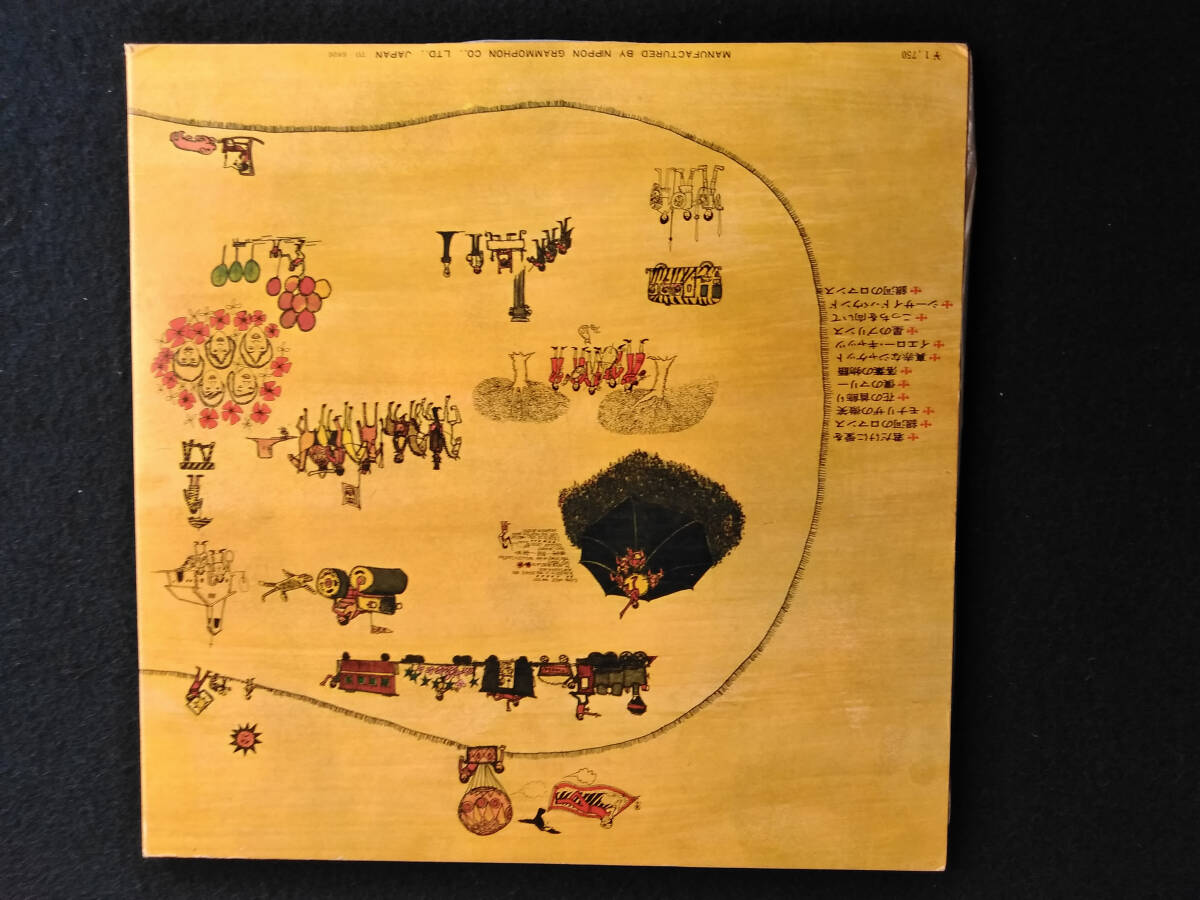 + 君だけに愛を
+ 銀河のロマンス
+ モナリザの微笑
+ 花の首飾り
+ 僕のマリー
+ 落葉の物語
+ 真赤なジャケット
+ イエロー・キャッツ
+ 星のプリンス
+ こっちを向いて
+ シーサイド・バウンド
+ 銀河のロマンス
¥1,750
MANUFACTURED BY NIPPON GRAMMOPHON CO., LTD., JAPAN